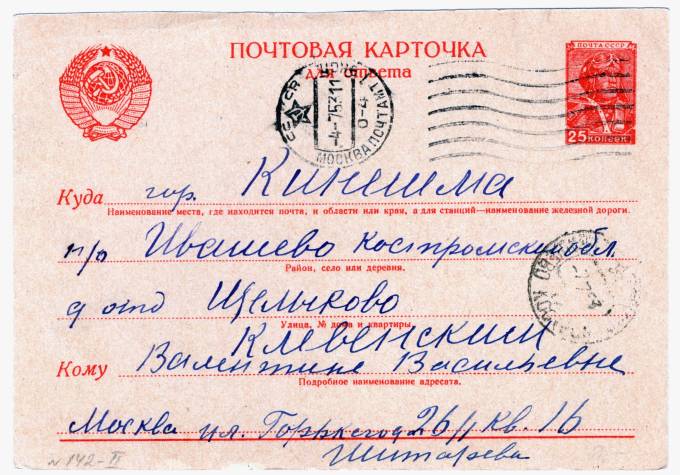 ПОЧТОВАЯ КАРТОЧКА
для ответа
ПОЧТА СССР
25 КОПЕЕК
МОСКВА ПОЧТАМТ
Куда гор. Кинешма
Наименование места, где находится почта, и области или края, а для станций—наименование железной дороги.
п/о Ивашево Костромской обл.
Район, село или деревня.
д отд Щелыково
Улица, № дома и квартиры.
Клевенский
Кому Валентине Васильевне
Подробное наименование адресата.
Москва ул. Горького 26/1 кв. 16
Шитарева
N 142-II